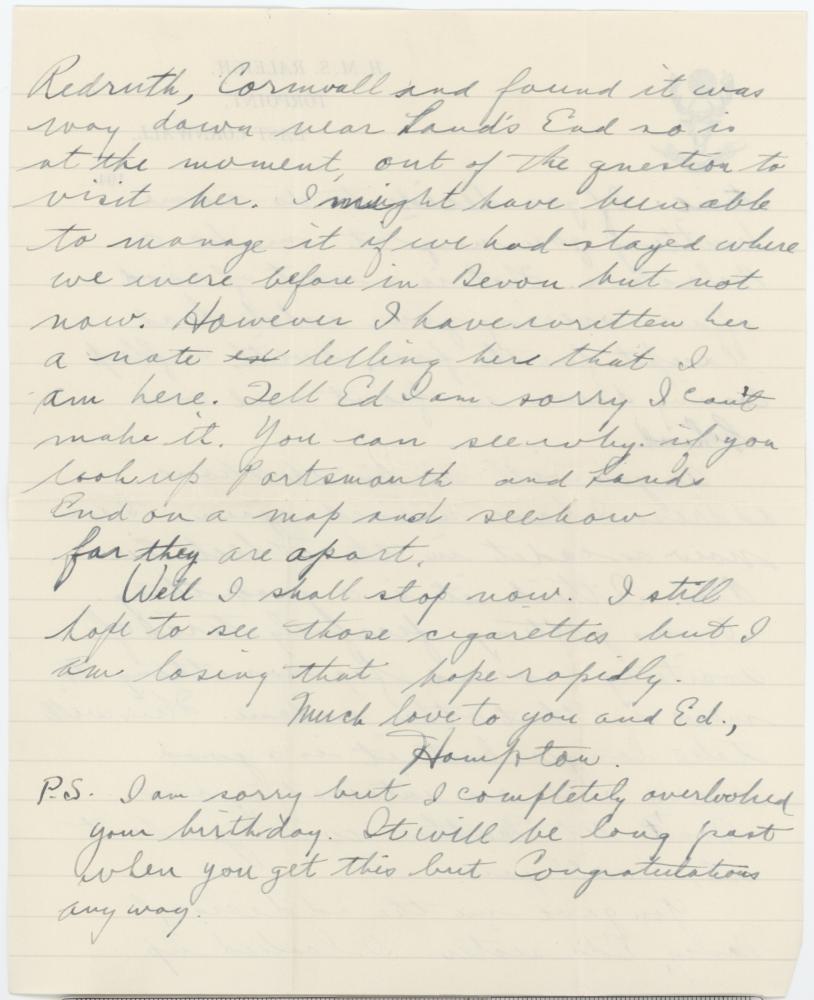 Redruth, Cornwall and found it was
way down near Land's End so is
at the moment, out of the question to
visit her. I might have been able
to manage it if we had stayed where
we were before in Devon but not
now. However I have written her
a note telling here that I
am here. Tell Ed I am sorry I can't
make it. You can see why if you
look up Portsmouth and Lands
End on a map and see how
far they are apart.
Well I shall stop now. I still
hope to see those cigarettes but I
am losing that hope rapidly.
Much love to you and Ed.,
Hampton.
P.S. I am sorry but I completely overlooked
your birthday. It will be long past
when you get this but Congratulations
any way.